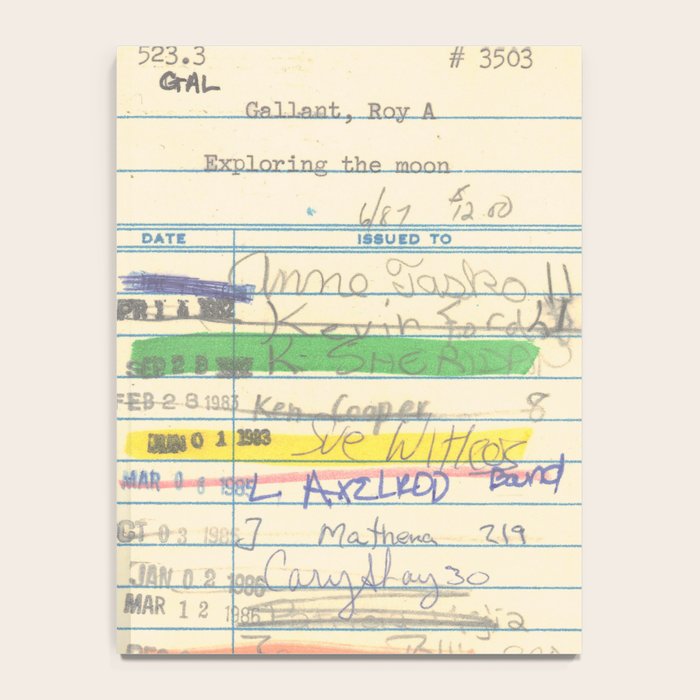 523.3 # 3503
GAL
Gallant, Roy A
Exploring the moon
6/87 $12.00
DATE ISSUED TO
Anne Tasko 11
APR 1 1982 Kevin Ford
SEP 2 1982 K. SHERIDAN
FEB 28 1983 Ken Cooper 8
JUN 01 1983 Sue Wittcos
MAR 0 8 1985 L AXELROD Band
OCT 03 1985 J Mathena 219
JAN 02 1986 Cary Shay 30
MAR 12 1986